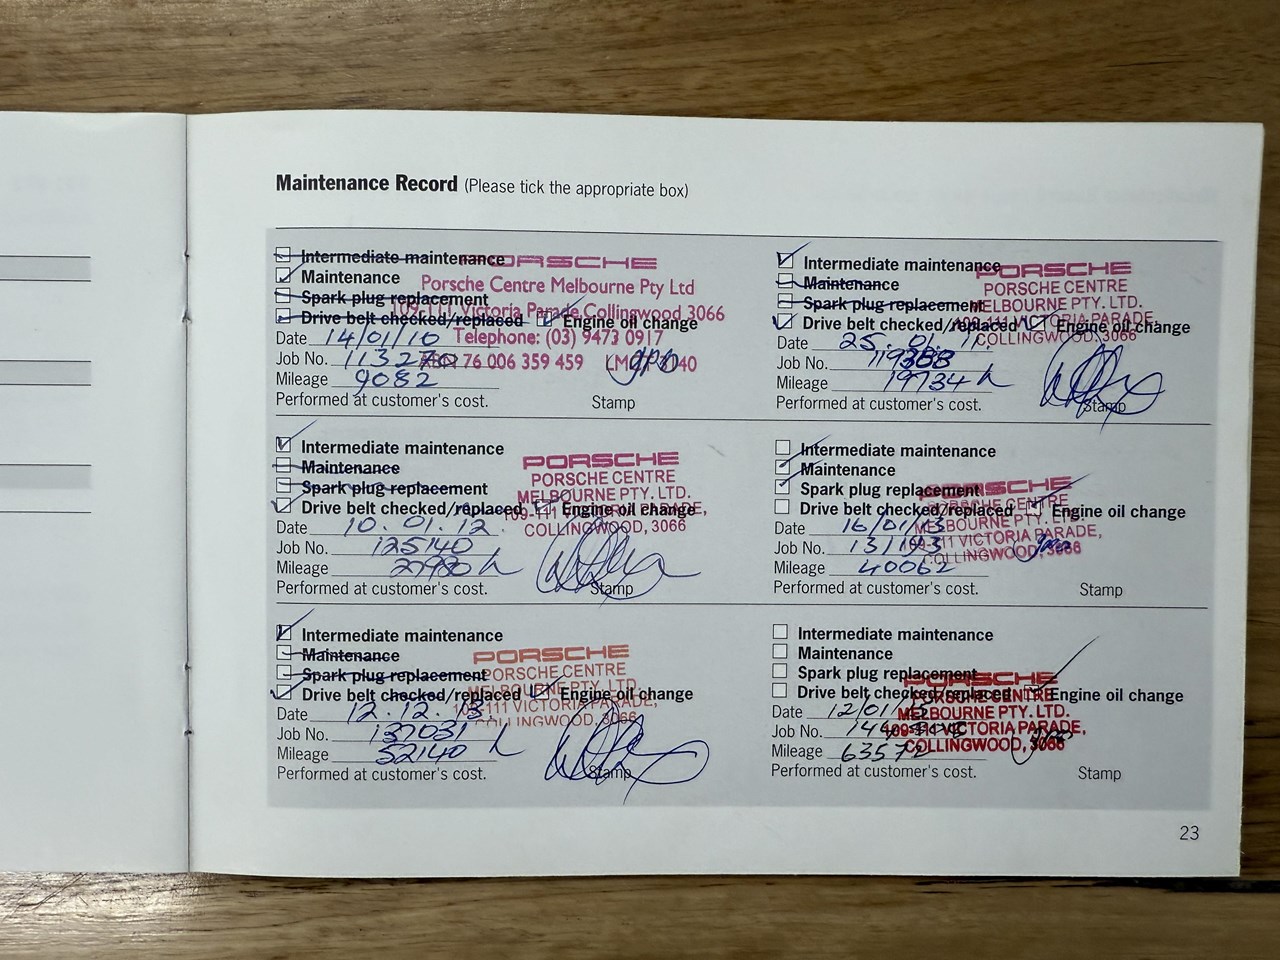 Maintenance Record (Please tick the appropriate box)
Intermediate maintenance
Maintenance
Spark plug replacement
Drive belt checked/replaced Engine oil change
Date 14/01/10
Job No. 113270
Mileage 9082
Performed at customer's cost. Stamp
PORSCHE
Porsche Centre Melbourne Pty Ltd
109-111 Victoria Parade Collingwood 3066
Telephone: (03) 9473 0917
76 006 359 459
Intermediate maintenance
Maintenance
Spark plug replacement
Drive belt checked/replaced Engine oil change
Date 25. 01. 11.
Job No. 119388
Mileage 19734
Performed at customer's cost. Stamp
PORSCHE
PORSCHE CENTRE
MELBOURNE PTY. LTD.
VICTORIA PARADE,
COLLINGWOOD, 3066
Intermediate maintenance
Maintenance
Spark plug replacement
Drive belt checked/replaced Engine oil change
Date 10. 01. 12.
Job No. 125140
Mileage
Performed at customer's cost. Stamp
PORSCHE
PORSCHE CENTRE
MELBOURNE PTY. LTD.
109-111 VICTORIA PARADE,
COLLINGWOOD, 3066
Intermediate maintenance
Maintenance
Spark plug replacement
Drive belt checked/replaced Engine oil change
Date 16/01/13
Job No. 131193
Mileage 40062
Performed at customer's cost. Stamp
PORSCHE
PORSCHE CENTRE
MELBOURNE PTY. LTD.
109-111 VICTORIA PARADE,
COLLINGWOOD, 3066
Intermediate maintenance
Maintenance
Spark plug replacement
Drive belt checked/replaced Engine oil change
Date 12. 12. 13.
Job No. 137031
Mileage 52140
Performed at customer's cost. Stamp
PORSCHE
PORSCHE CENTRE
MELBOURNE PTY. LTD.
109-111 VICTORIA PARADE,
COLLINGWOOD, 3066
Intermediate maintenance
Maintenance
Spark plug replacement
Drive belt checked/replaced Engine oil change
Date 12/01/15
Job No.
Mileage 63572
Performed at customer's cost. Stamp
PORSCHE
PORSCHE CENTRE
MELBOURNE PTY. LTD.
109-111 VICTORIA PARADE,
COLLINGWOOD, 3066
23